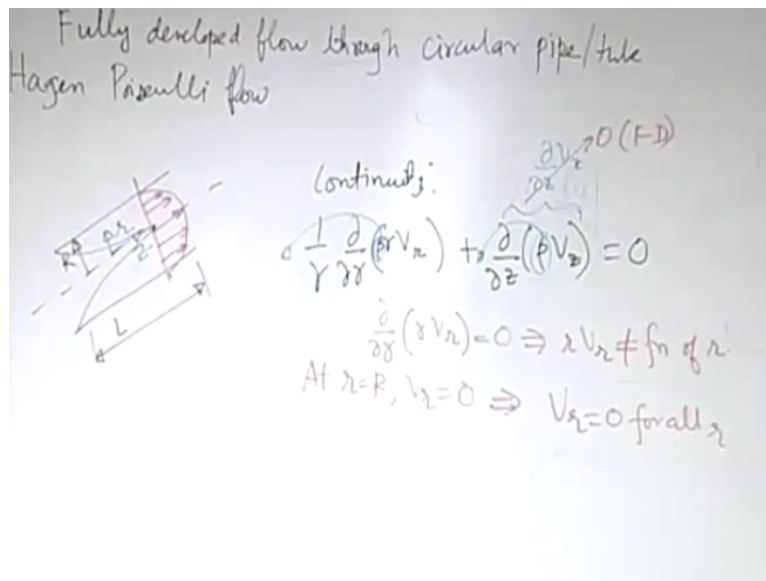 Fully developed flow through circular pipe/tube
Hagen Poiseulli flow
∂Vz/∂z → 0 (FD)
Continuity:
1/r ∂/∂r (ρrVr) + ∂/∂z (ρVz) = 0
R r z
L
∂/∂r (rVr) = 0 ⇒ rVr ≠ fn of r
At r=R, Vr=0 ⇒ Vr=0 for all r